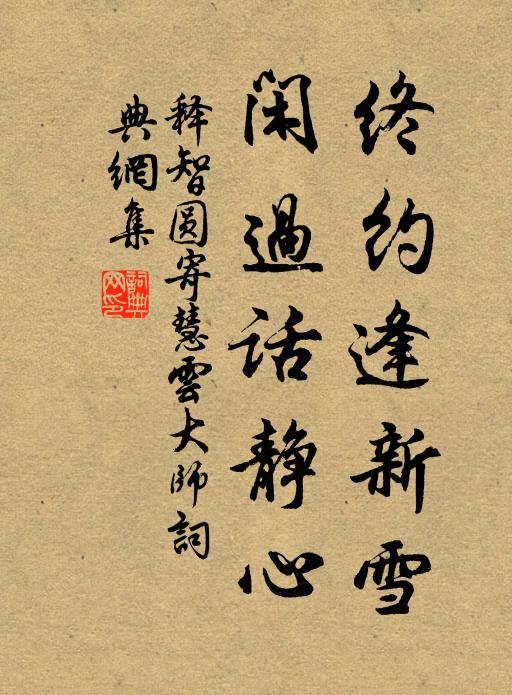 终约逢新雪
闲过话静心
释智圆寄慧雲大师詞
典網集
詞典网印